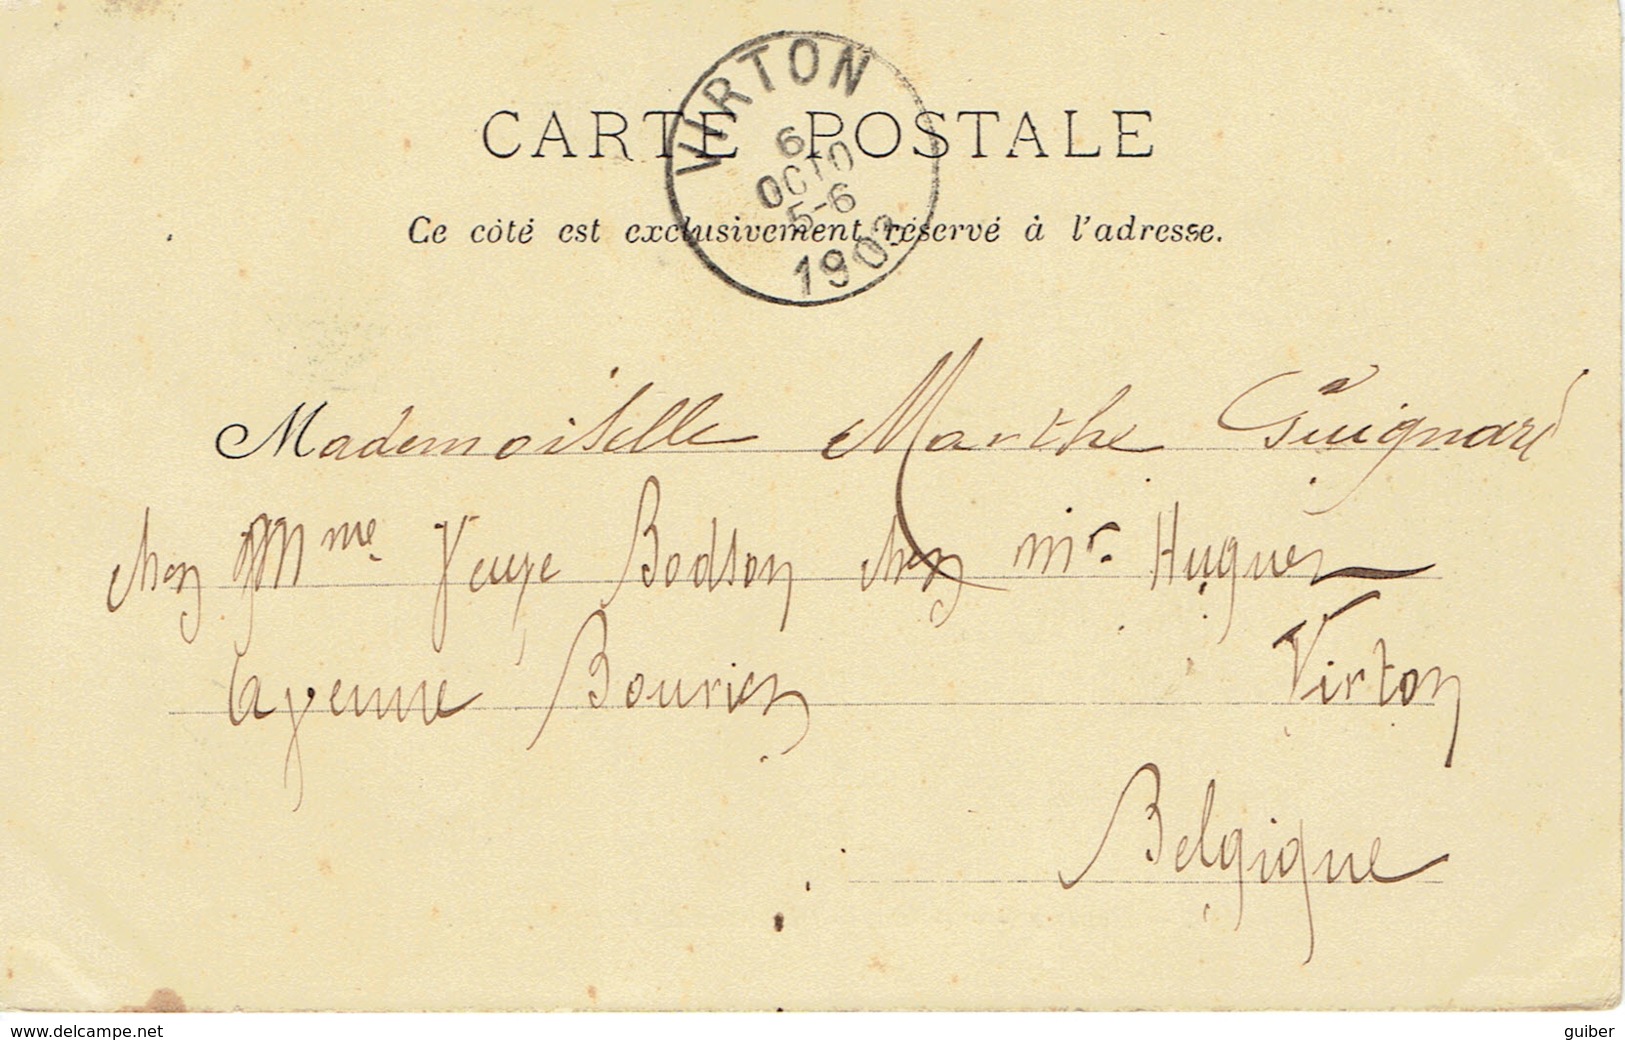 VIRTON
6
OCTO
5-6
1903
CARTE POSTALE
Ce côté est exclusivement réservé à l'adresse.
Mademoiselle Marthe Guignard
chez Mme Veuve Bodson chez Mr Hugues
avenue Bouvier Virton
Belgique
www.delcampe.net
guiber